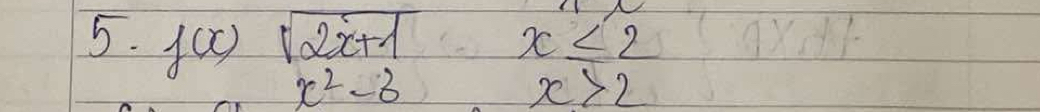 5. f(x) √2x+1 x ≤ 2
x² - 3 x > 2